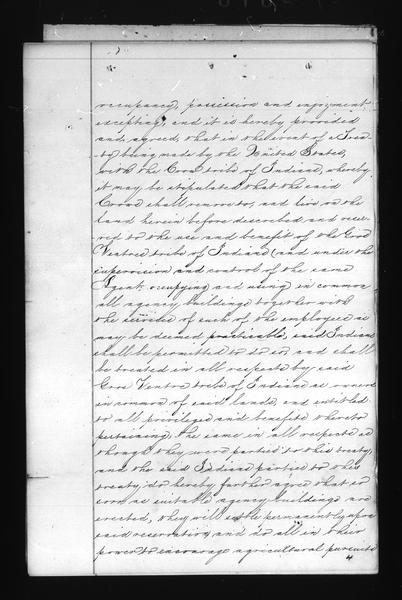 occupancy, possession and enjoyment
excepting, and it is hereby provided
and agreed, that in the event of a Trea-
ty being made by the United States,
with the Crow tribe of Indians, whereby
it may be stipulated that the said
Crows shall remove to, and live on the
land herein before described and reser-
ved to the use and benefit of the Gros
Ventres tribe of Indians (and under the
supervision and control of the same
Agent, occupying and using in common
all agency buildings together with
the services of such of the employees as
may be deemed practicable, said Indians
shall be permitted to do so, and shall
be treated in all respects by said
Gros Ventres tribe of Indians as owners
in common of said lands, and entitled
to all privileges and benefits thereto
pertaining, the same in all respects as
though they were parties to this treaty,
and the said Indians parties to this
treaty do hereby further agree that as
soon as suitable agency buildings are
erected, they will settle permanently upon
said reservation and do all in their
power to encourage agricultural pursuits